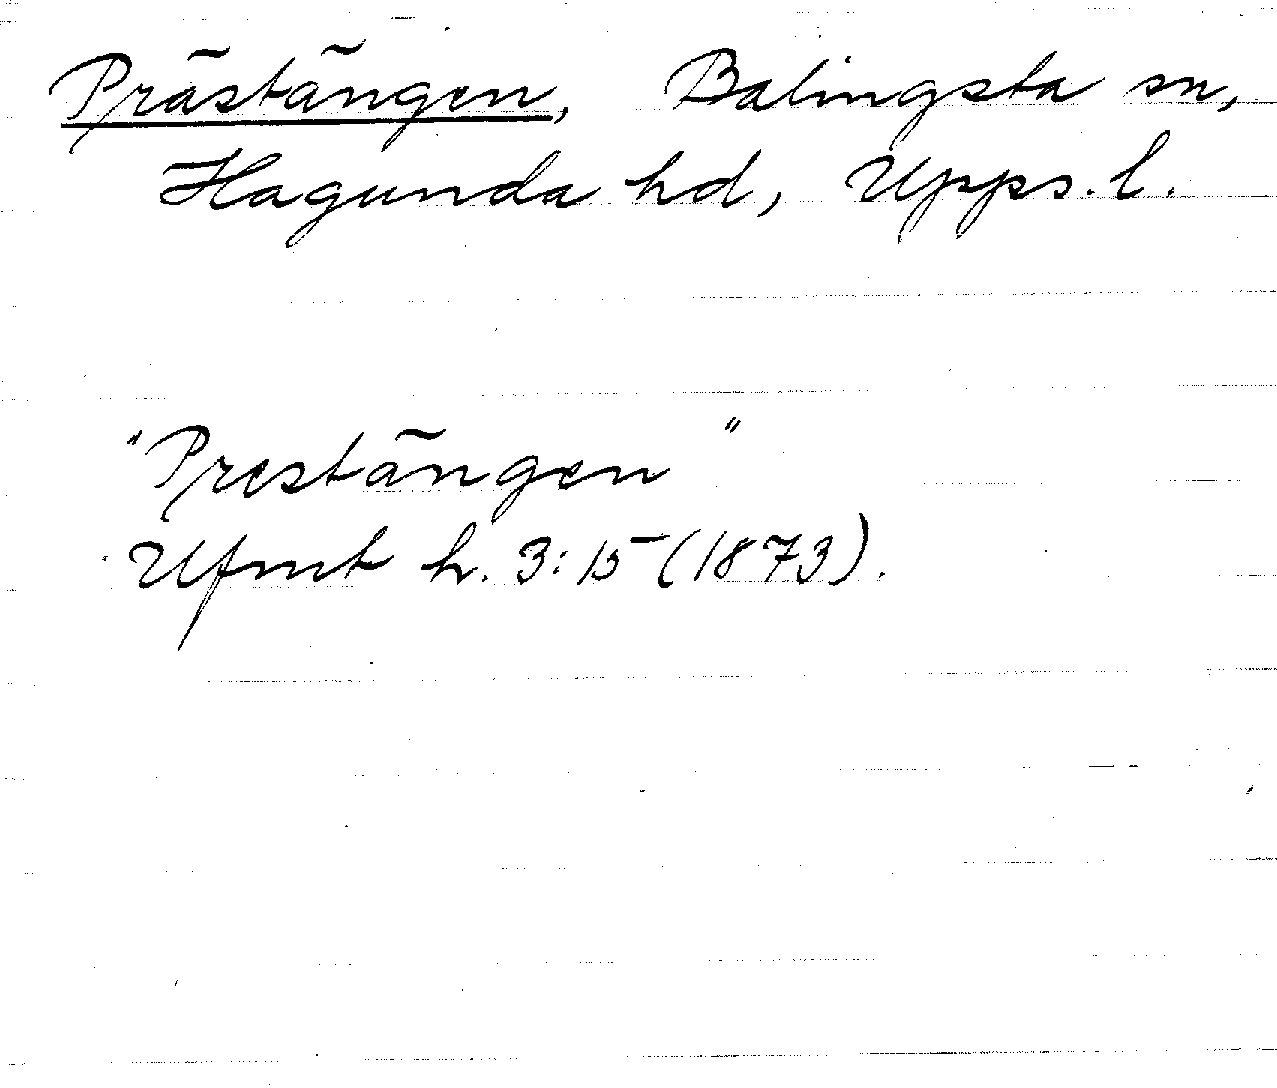 Prästängen, Balingsta sn,
Hagunda hd, Upps. l.
"Prestängen"
Ufmt h. 3:15 (1873).